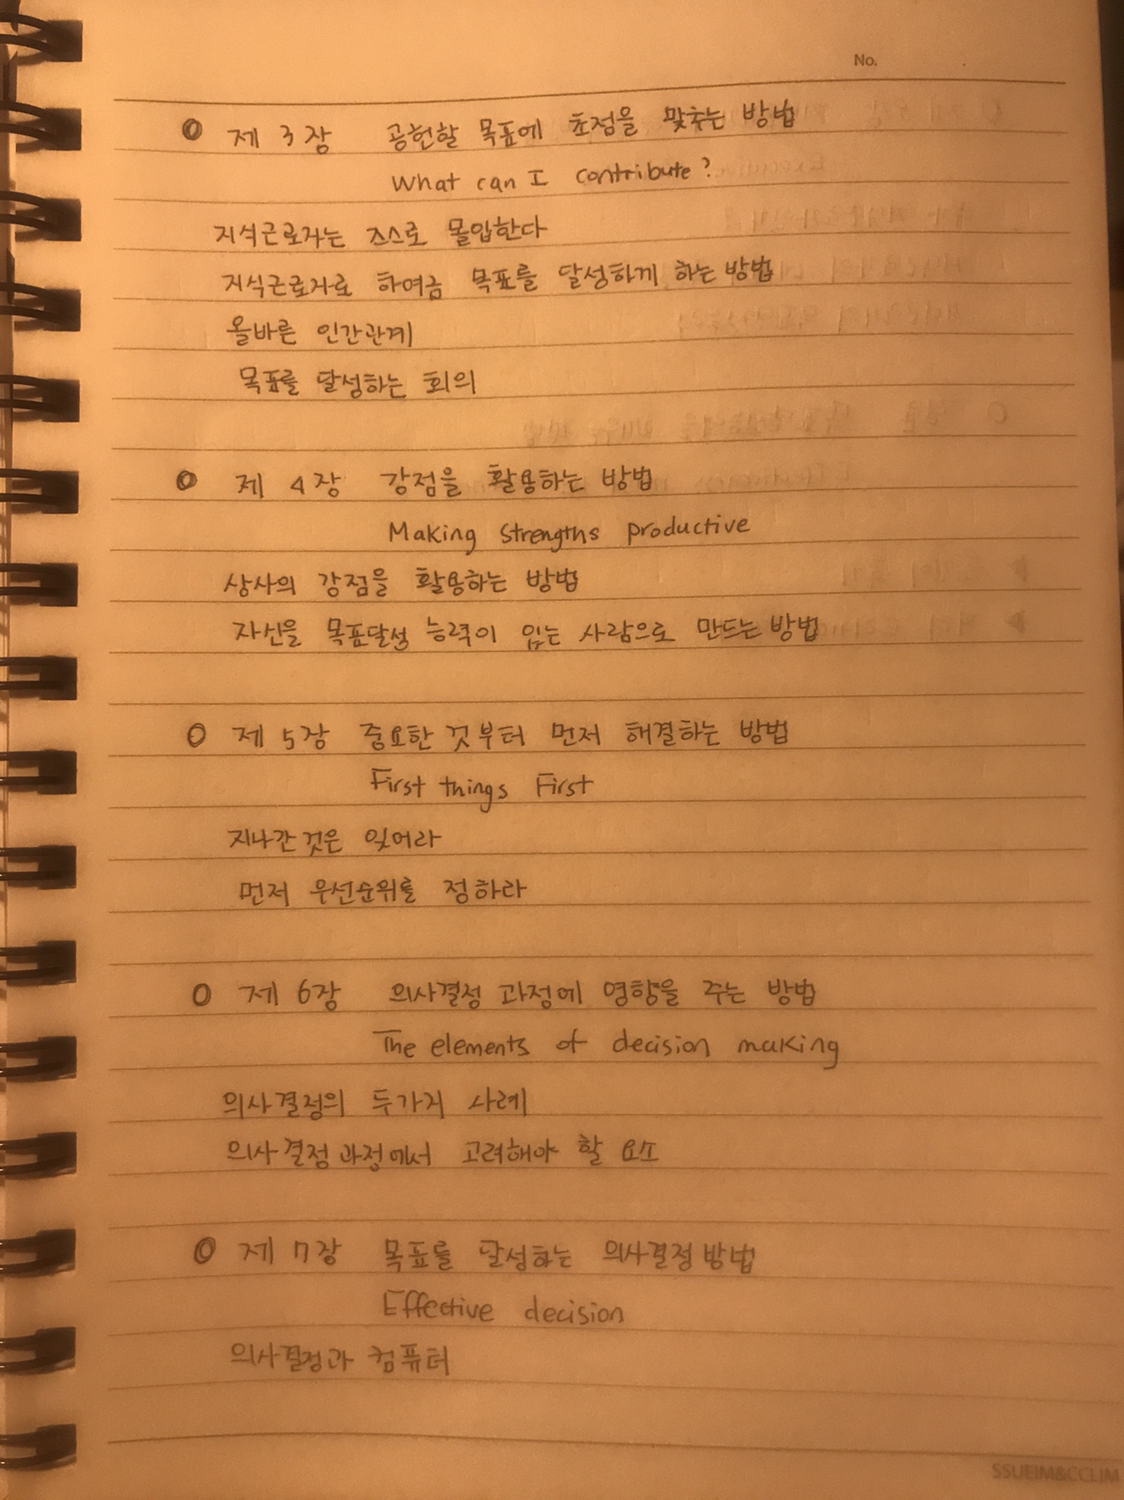 No.
O 제 3 장 공헌할 목표에 초점을 맞추는 방법
What can I contribute?
지식근로자는 스스로 몰입한다
지식근로자로 하여금 목표를 달성하게 하는 방법
올바른 인간관계
목표를 달성하는 회의
O 제 4 장 강점을 활용하는 방법
Making strengths productive
상사의 강점을 활용하는 방법
자신을 목표달성 능력이 있는 사람으로 만드는 방법
O 제 5 장 중요한 것부터 먼저 해결하는 방법
First things First
지나간 것은 잊어라
먼저 우선순위를 정하라
O 제 6 장 의사결정 과정에 영향을 주는 방법
The elements of decision making
의사결정의 두가지 사례
의사결정 과정에서 고려해야 할 요소
O 제 7 장 목표를 달성하는 의사결정 방법
Effective decision
의사결정과 컴퓨터
SSUEIM&CCLIM